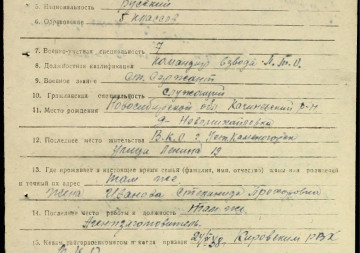 5. Национальность Русский
6. Образование 5 классов
7. Военно-учетная специальность 7
8. Должностная квалификация командир взвода П.Т.О.
9. Военное звание ст. Сержант
10. Гражданская специальность Служащий
11. Место рождения Новосибирской обл. р-н
12. Последнее место жительства В.К.О. г. Усть Каменогорск
Улица Ленина 12
13. Где проживает в настоящее время семья (фамилия, имя, отчество)
и точный их адрес Там же
Жена Иванова Степанида Прохоровна
14. Последнее место работы и должность Там же
15. Каким райгорвоенкоматом и когда призван Кировским РВК